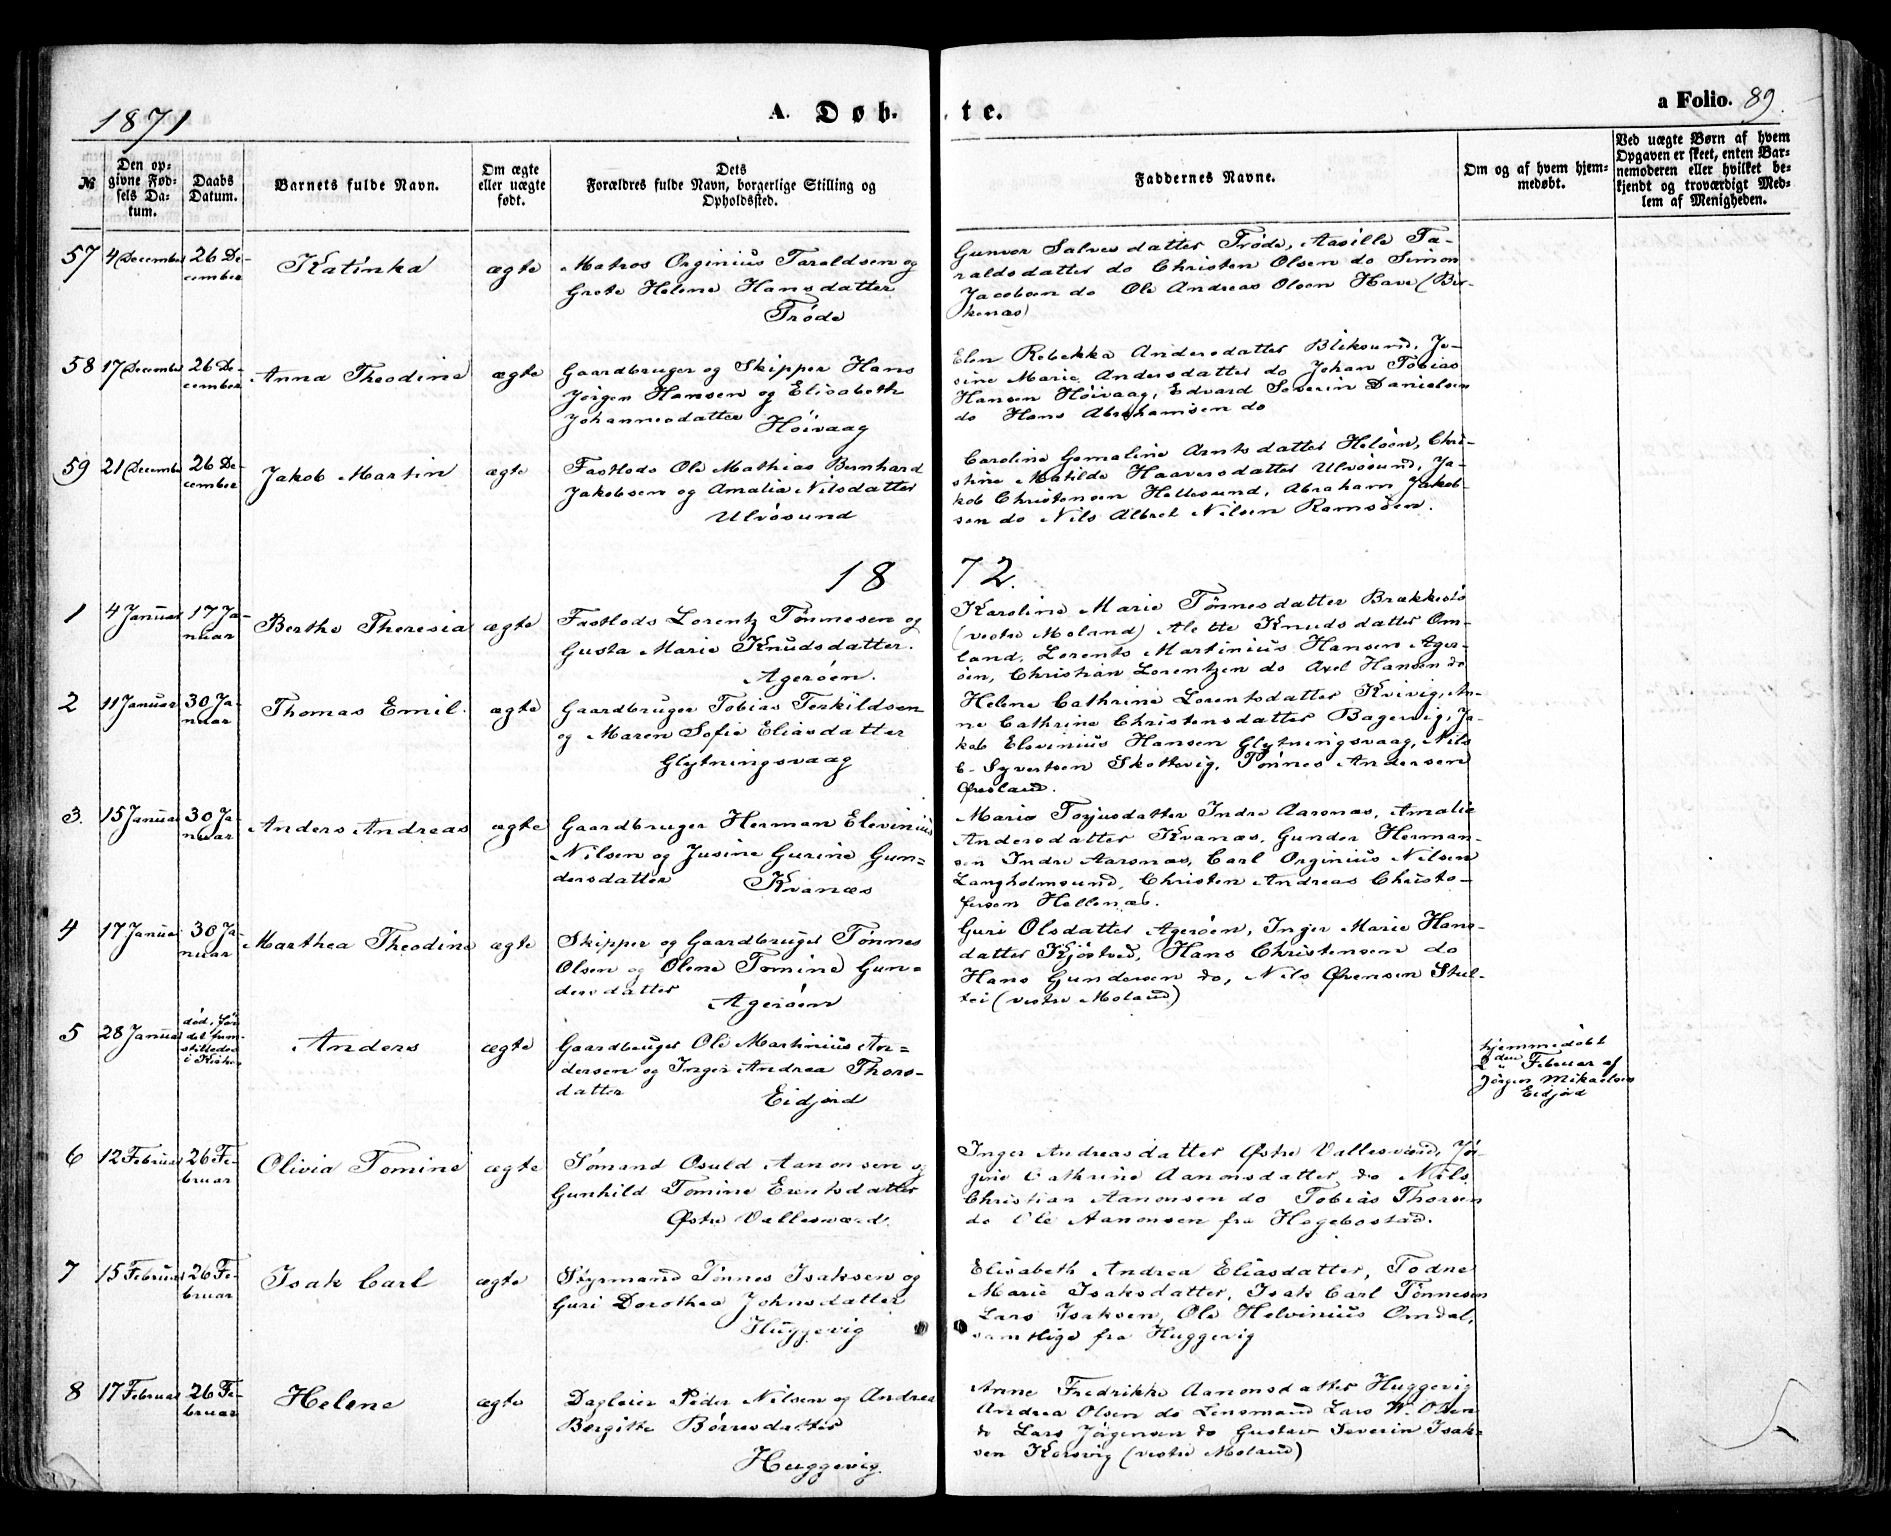 1871
A. Døb.
te.
a Folio. 89.
№
Den op-
givne Fød-
sels Da-
tum.
Daabs
Datum.
Barnets fulde Navn.
Om ægte
eller uægte
født.
Dets
Forældres fulde Navn, borgerlige Stilling og
Opholdssted.
Faddernes Navne.
Om og af hvem hjem-
medøbt.
Ved uægte Børn af hvem
Opgaven er skeet, enten Bar-
nemoderen eller hvilket be-
kjendt og troværdigt Med-
lem af Menigheden.
57 4 December 26 De-
cember
Katinka
ægte
Matros Orginius Taraldsen og
Grete Helene Hansdatter
Trøde
Gunvor Salvesdatter Trøde, Aasille Ta-
raldsdatter do Christen Olsen do Simon
Jacobsen do Ole Andreas Olsen Have (Bir-
kenæs)
58 17 December 26 De-
cember
Anna Theodine
ægte
Gaardbruger og Skipper Hans
Jørgen Hansen og Elisabeth
Johannesdatter Höivaag
Elen Rebekka Andersdatter Bliksund, Jo-
sine Marie Andersdatter do Johan Tobias
Hansen Höivaag, Edvard Severin Danielsen
do Hans Abrahamsen do
59 21 December 26 De-
cember
Jakob Martin
ægte
Fastlods Ole Mathias Bernhard
Jakobsen og Amalia Nilsdatter
Ulvösund
Caroline Gemaline Arntsdatter Helsöen, Chri-
stine Matilde Haaversdatter Ulvösund, Ja-
kob Christensen Hellesund, Abraham Jakob-
sen do Nils Albret Nilsen Ramsöen.
18 72.
1 4 Januar 17 Ja-
nuar
Berthe Theresia
ægte
Fastlods Lorentz Tönnesen og
Gusta Marie Knudsdatter.
Ageröen.
Karoline Marie Tönnesdatter Brækkestö
(vestre Moland) Alette Knudsdatter Om-
land, Lorents Martinius Hansen Ager-
öen, Christian Lorentzen do Axel Hansen do
2 11 Januar 30 Ja-
nuar
Thomas Emil.
ægte
Gaardbruger Tobias Terkildsen
og Maren Sofie Eliasdatter
Glytningsvaag
Helene Cathrine Lorentsdatter Kvivig, An-
ne Cathrine Christensdatter Bagervig, Ja-
kob Elevinius Hansen Glytningsvaag, Nils
C. Syvertsen Skottevig, Tönnes Andersen
Øvesland.
3. 15 Januar 30 Ja-
nuar
Anders Andreas
ægte
Gaardbruger Herman Elevinius
Nilsen og Jusine Gurine Gun-
dersdatter Kvanæs
Marie Torjusdatter Indre Aarsnæs, Amalie
Andersdatter Kvanæs, Gunder Herman-
sen Indre Aarsnæs, Carl Orginius Nilsen
Langholmsund, Christen Andreas Christo-
fersen Hellenæs.
4 17 Januar 30 Ja-
nuar
Marthea Theodine
ægte
Skipper og Gaardbruger Tönnes
Olsen og Olene Tomine Gun-
dersdatter
Ageröen
Guri Olsdatter Ageröen, Inger Marie Hans-
datter Kjöstved, Hans Christensen do
Hans Gundersen do, Nils Øvensen Stul-
tei (vestre Moland)
5 28 Januar död, för
det frem-
stilledes
i Kirken
Anders
ægte
Gaardbruger Ole Martinius An-
dersen og Inger Andrea Thors-
datter Eidjord
hjemmedøbt
2den Februar af
Jörgen Mikaelsen
Eidjord
6 12 Februar 26 Fe-
bruar
Olivia Tomine
ægte
Sömand Osuld Aanonsen og
Gunhild Tomine Erentsdatter
Østre Vallesværd.
Inger Andreasdatter Østre Vallesværd, Jör-
gine Cathrine Aanonsdatter do Nils
Christian Aanonsen do Tobias Thorsen
do Ole Aanonsen fra Hegebostad.
7 15 Februar 26 Fe-
bruar
Isak Carl
ægte
Styrmand Tönnes Isaksen og
Guri Dorothea Johnsdatter
Huggevig
Elisabeth Andrea Eliasdatter, Todne
Marie Isaksdatter, Isak Carl Tönnesen
Lars Isaksen, Ole Helvinius Omdal,
samtlige fra Huggevig
8 17 Februar 26 Fe-
bruar
Helene
ægte
Dagleier Peder Nilsen og Andrea
Bergitte Börresdatter
Huggevig
Anne Fredrikke Aanonsdatter Huggevig
Andrea Olsen do Lensmand Lars W. Olsen
do Lars Jörgensen do Gustav Severin Isak-
sen Korsvig (vestre Moland)